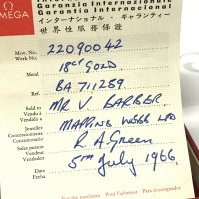 Ω
OMEGA
Garanzia Internazionale
Garantia Internacional
インターナショナル・ギャランティー
世界性服務保證
Mov. No. 22090042
Work No.
Metal 18CT GOLD
Ref. BA 711259
Sold to MR V. BARBER
Vendu à
Vendido a
Jeweller MAPPIN WEBB LTD
Concessionnaire
Concesionario
Sales person R A Green
Vendeur
Vendedor
Date 5TH July 1966.
Fecha
Pour l'acheteur